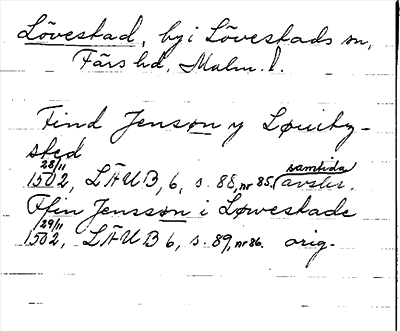 Lövestad, by i Lövestads sn,
Färs hd, Malm. l.
Find Jensson y Løuitz-
sted
28/11
1502, LÄU B, 6, s. 88, nr 85. (samtida avskr.
Ffin Jensson i Løwestade
29/11
1502, LÄU B 6, s. 89, nr 86. orig.